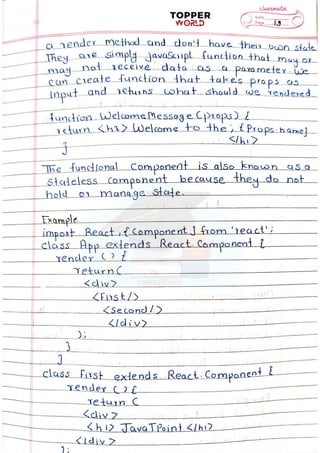 classmate
Date
Page 13
TOPPER
WORLD
a render method and don't have their own state
They are simply javaScript function that may or
may not receive data as a parameter. We
can create function that takes props as
input and returns what should we rendered
function WelcomeMessage (props) {
return <h1> Welcome to the, {Props name}
</h1>
}
The functional component is also known as a
Stateless component because they do not
hold or manage state.
Example
import React, {Component} from 'react';
class App extends React Component {
render () {
return(
<div>
<First/>
<second/>
</div>
);
}
}
class First extends React.Component {
render () {
return (
<div>
<h1> JavaTPoint </h1>
</div>
);